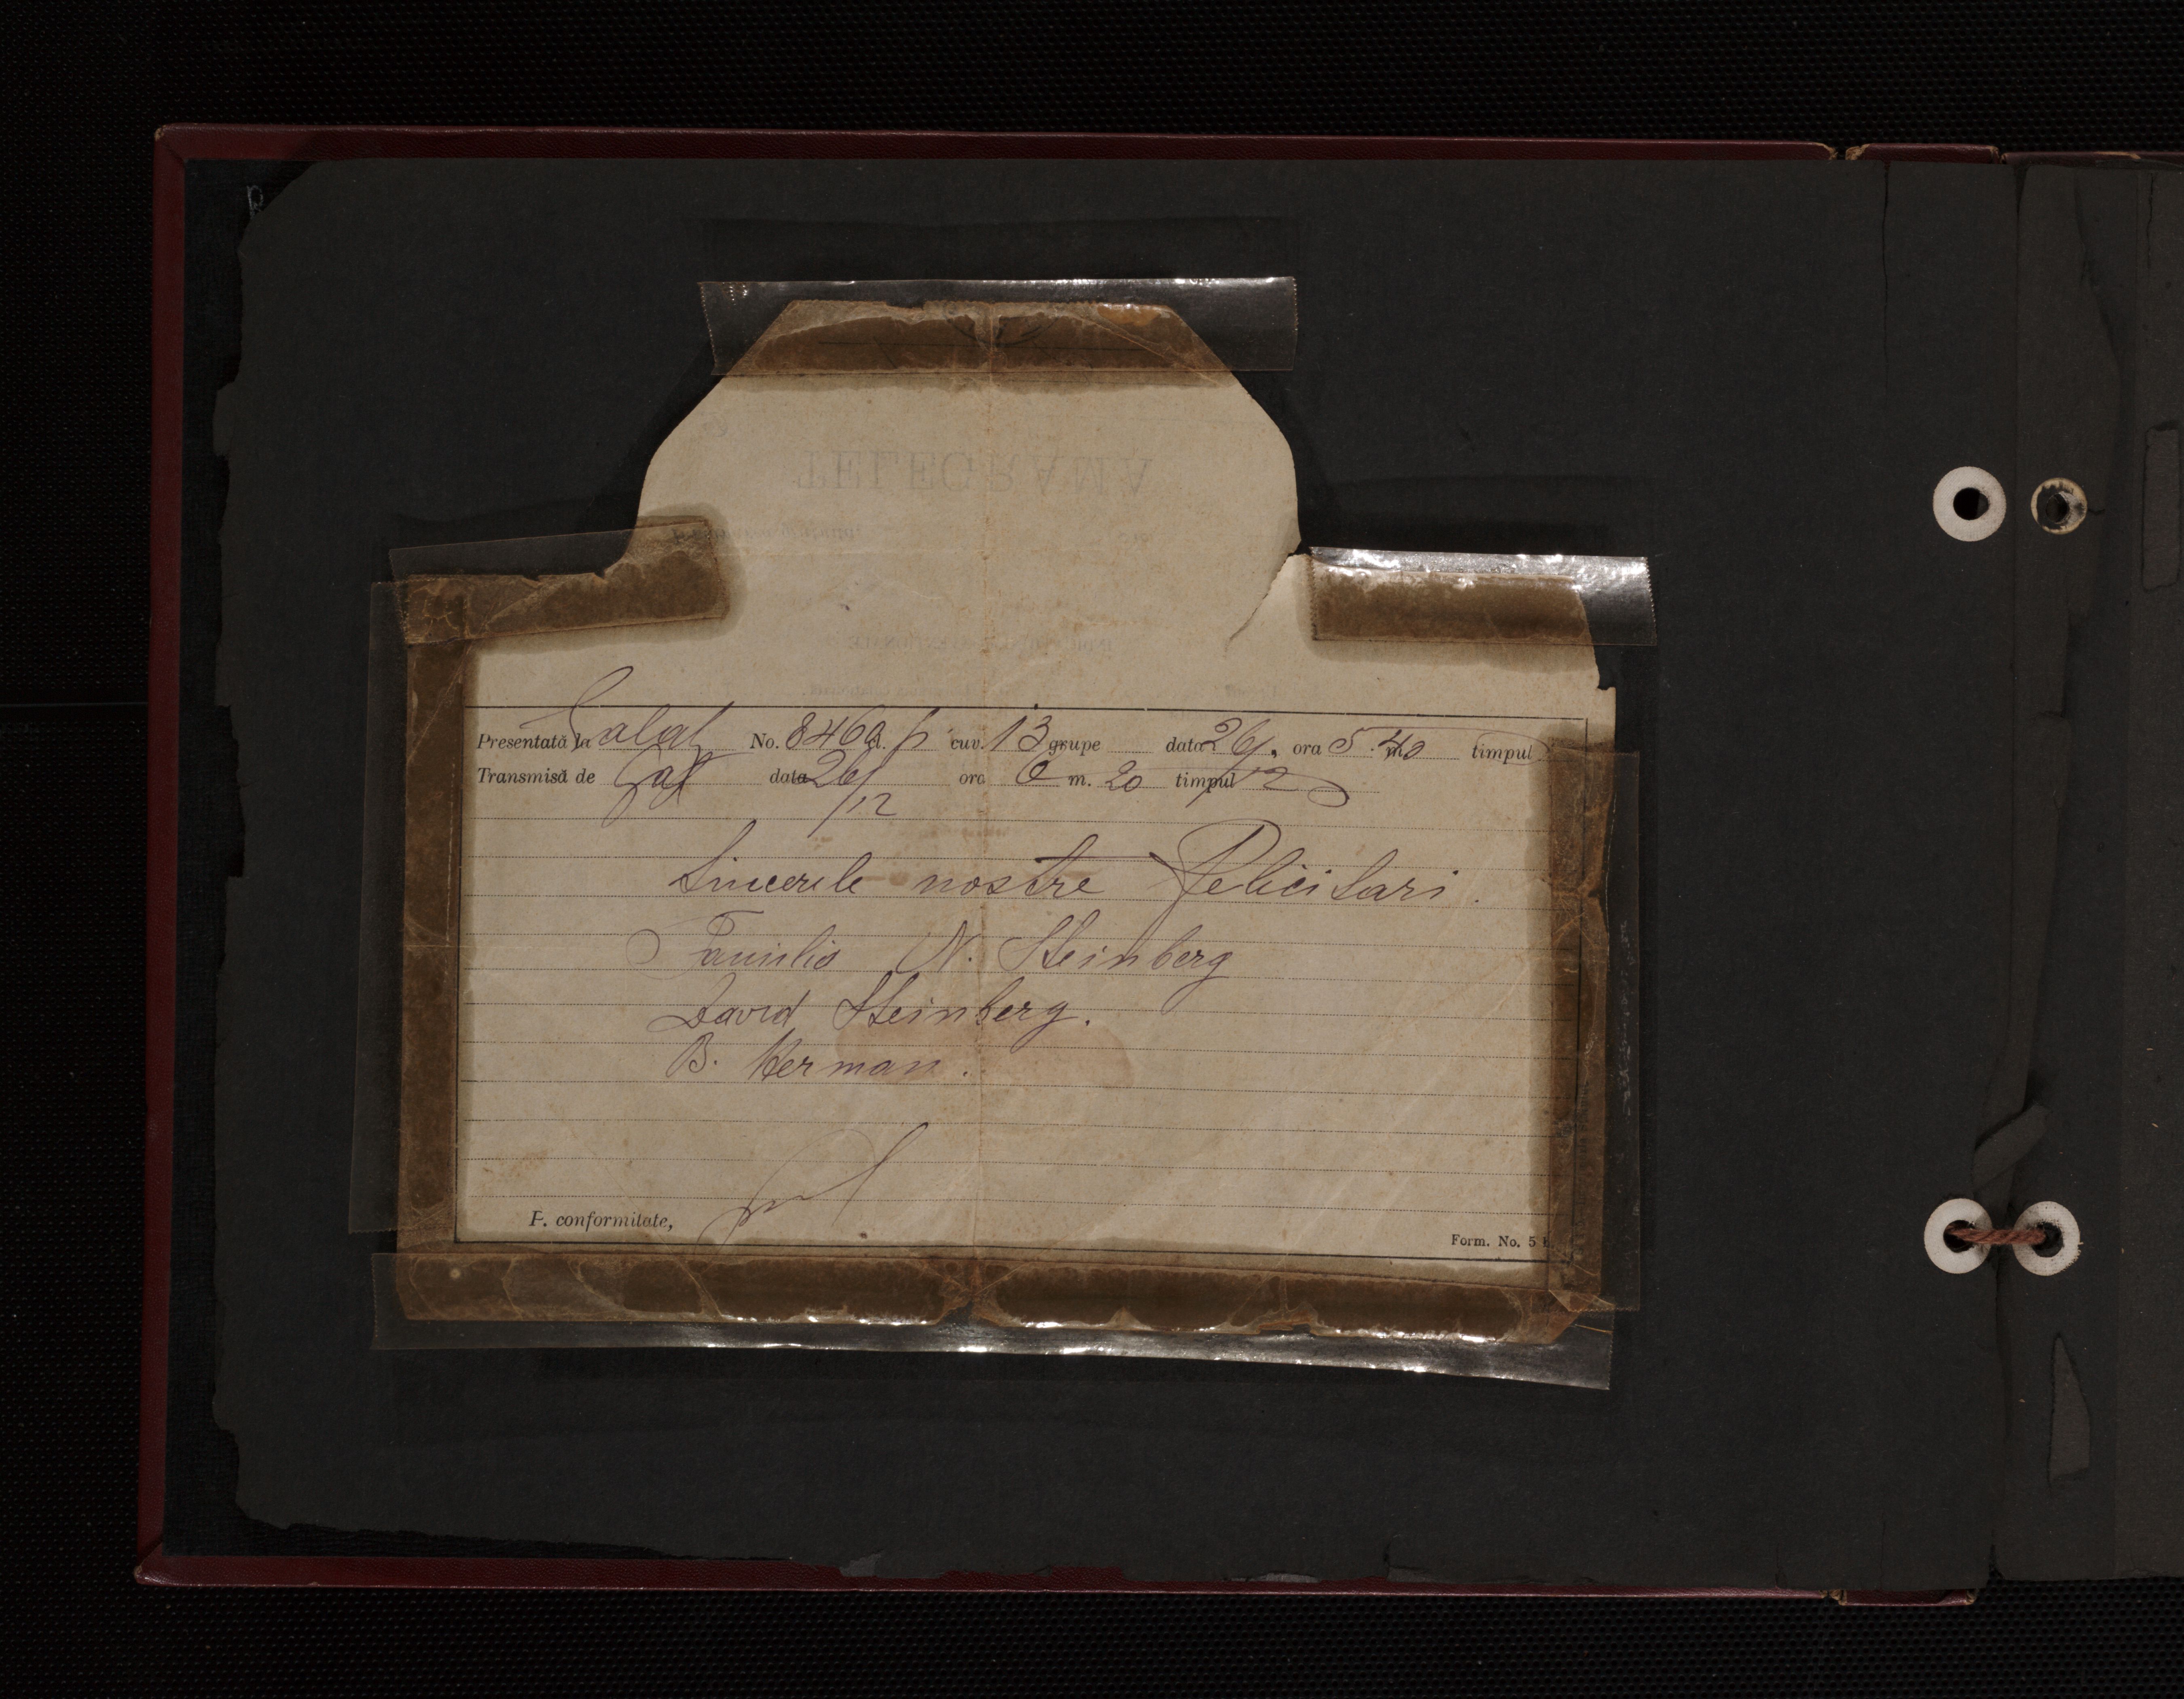 TELEGRAMA
Presentată la Galaţ No. 8460 d. p cuv. 13 grupe data 26/12 ora 5 m. 40 timpul
Transmisă de Gal data 26/12 ora 6 m. 20 timpul
Sincerile nostre Felicitari.
Familia N. Steinberg
David Steinberg.
B. Herman.
P. conformitate,
Form. No. 5